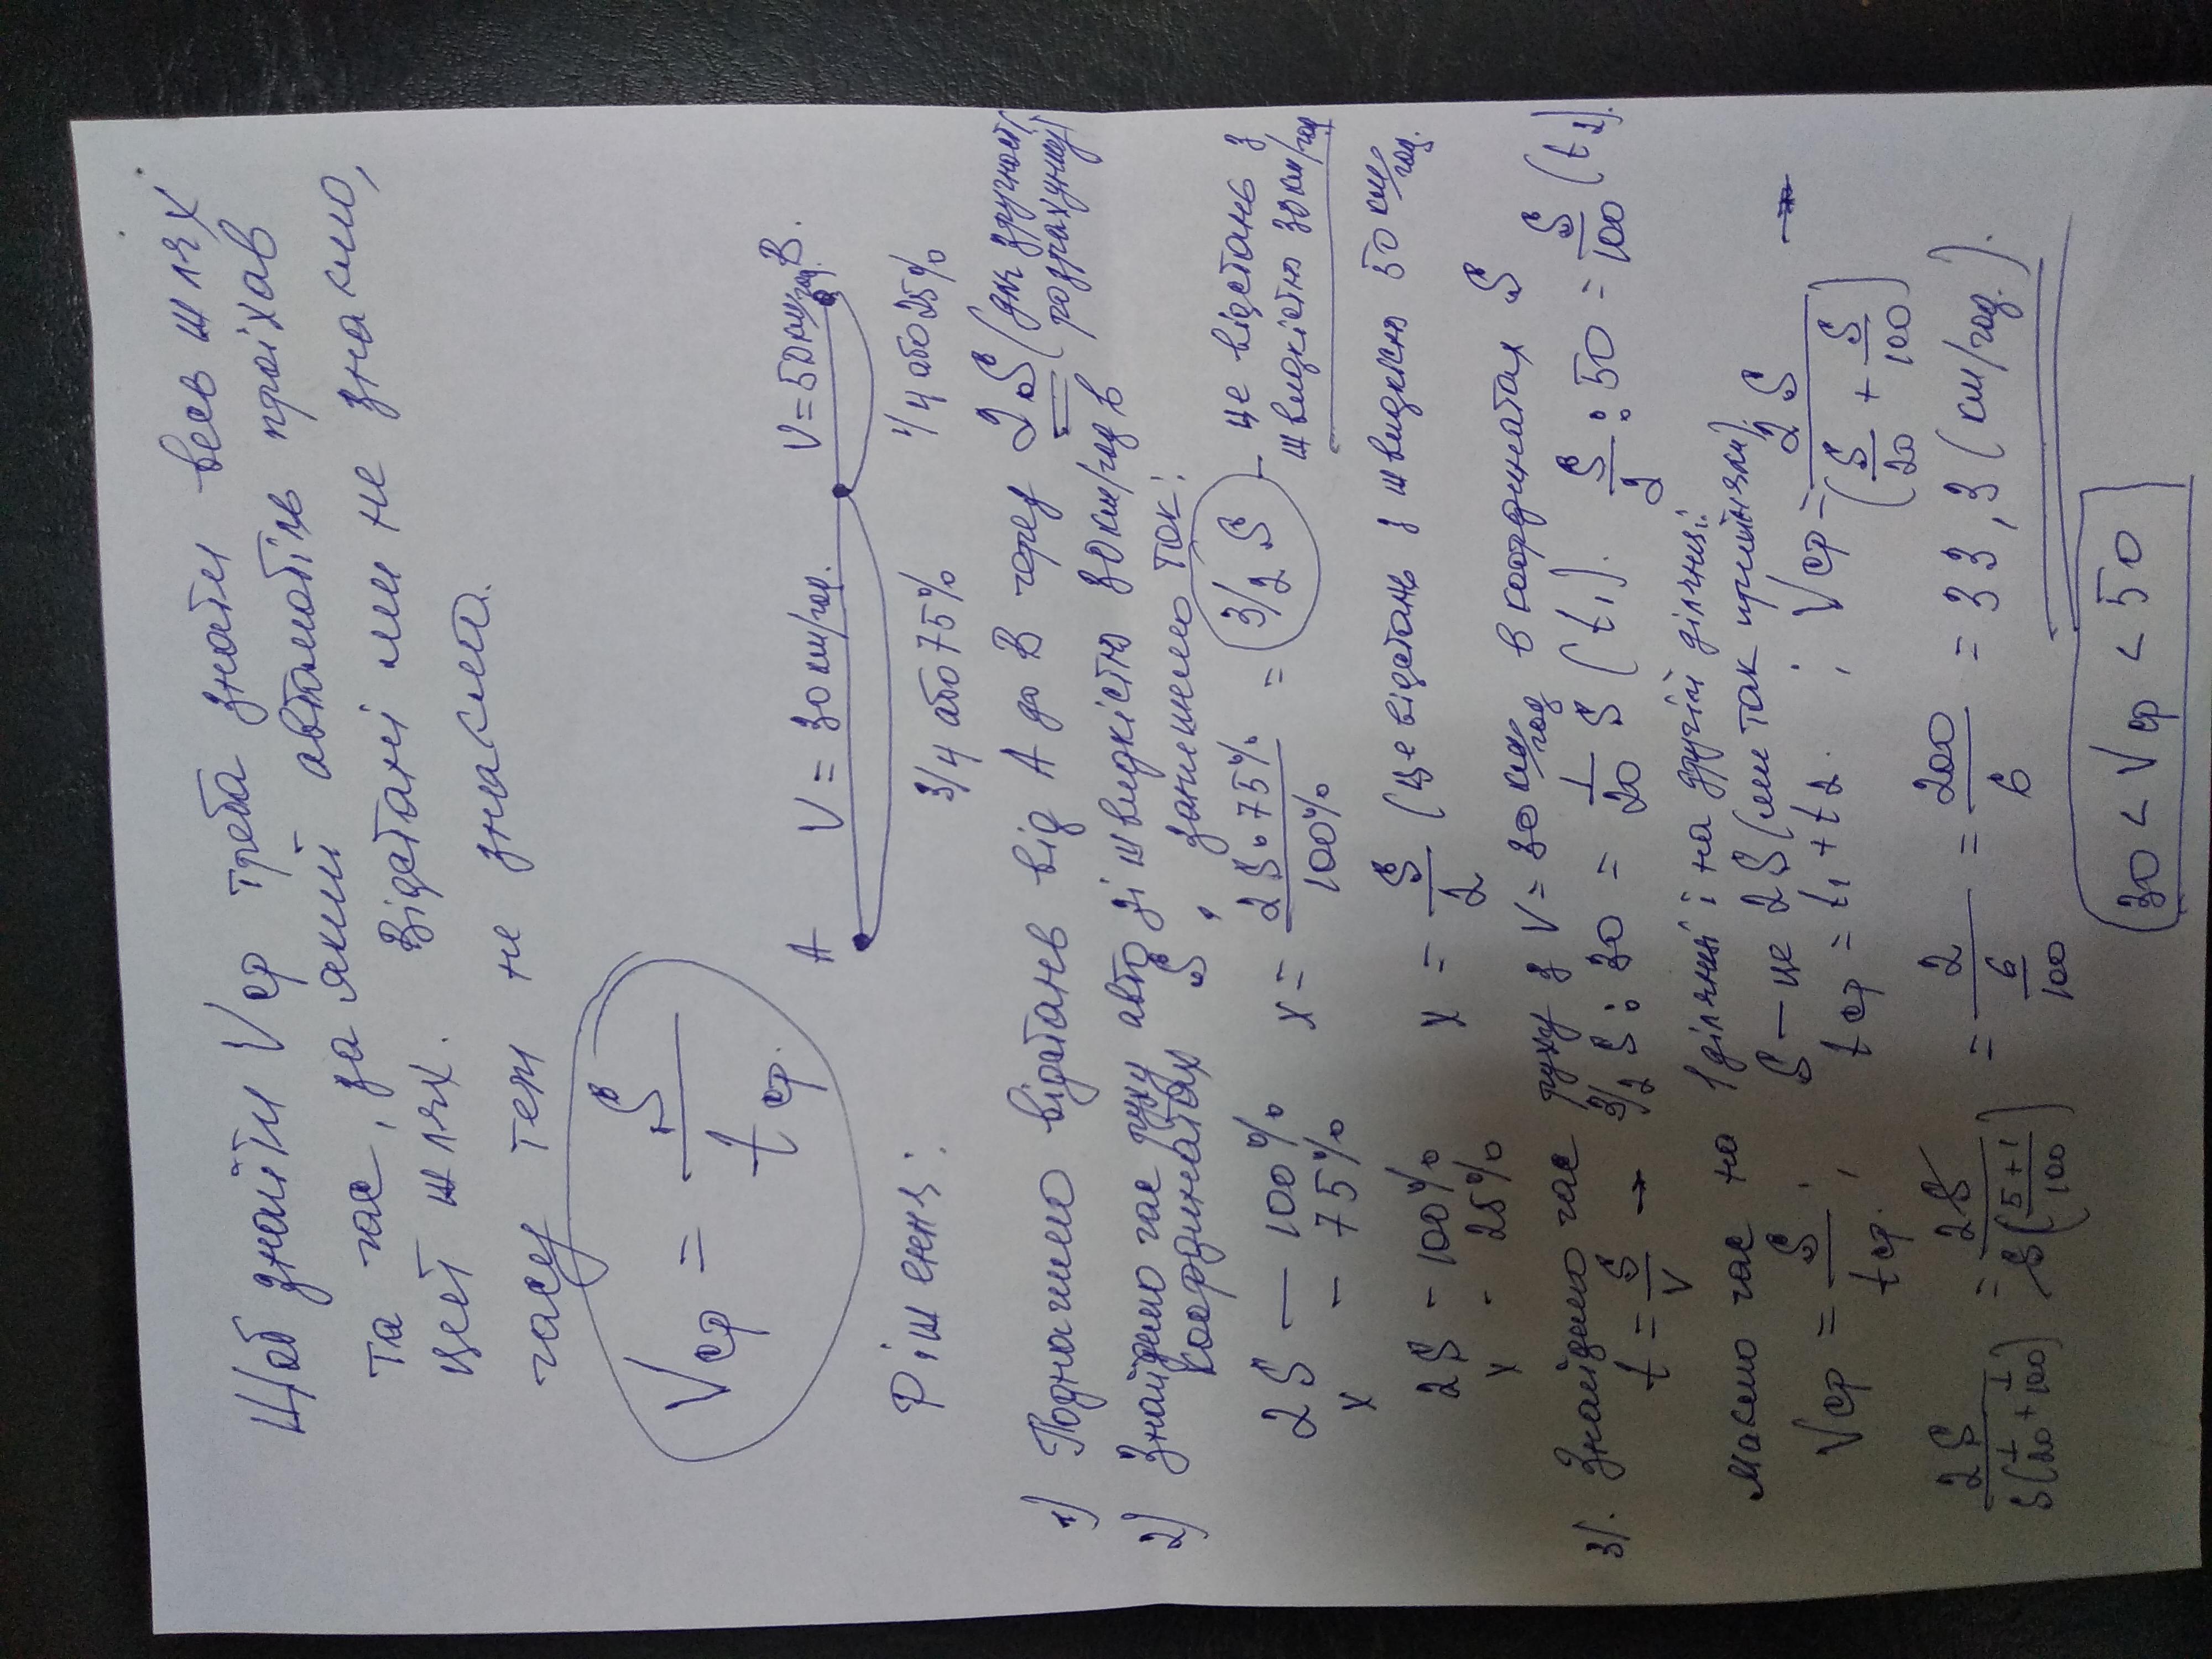 Щоб знайти Vср треба знати весь шлях
та час, за який автомобіль проїхав
цей шлях. Відстані ми не знаємо,
часу теж не знаємо.
Vср = S / tср.
A V = 30 км/год. V = 50 км/год. B.
3/4 або 75% 1/4 або 25%
Рішення:
1) Позначимо відстань від А до В через 2S (для зручності розрахунку)
2) Знайдемо час руху авто зі швидкістю 30 км/год в
координатах S, запишемо так:
2S — 100%
x — 75%
x = 2S · 75% / 100% = 3/2 S - це відстань з швидкістю 30 км/год
2S - 100%
x - 25%
x = S/2 (це відстань з швидкістю 50 км/год.
3). Знайдемо час руху з V = 30 км/год в координатах S
t = S/V → 3/2 S : 30 = 1/20 S (t1). S/2 : 50 = S/100 (t2).
Маємо час на 1 ділянці і на другій ділянці.
Vср = S/tср. ; S — це 2S (ми так прийняли).
tср = t1 + t2. ; Vср = 2S / (S/20 + S/100) →
2S / S(1/20 + 1/100) = 2S / S(5+1/100) = 2 / 6/100 = 200/6 = 33,3 (км/год.).
30 < Vср < 50